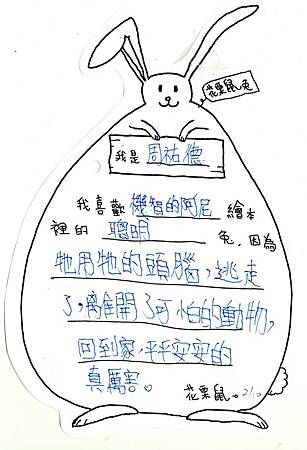 花栗鼠兔
我是周祐德
我喜歡機智的阿尼繪本
裡的聰明兔,因為
牠用牠的頭腦,逃走
了,離開了可怕的動物,
回到家,平平安安的
真厲害。
花栗鼠。2/10